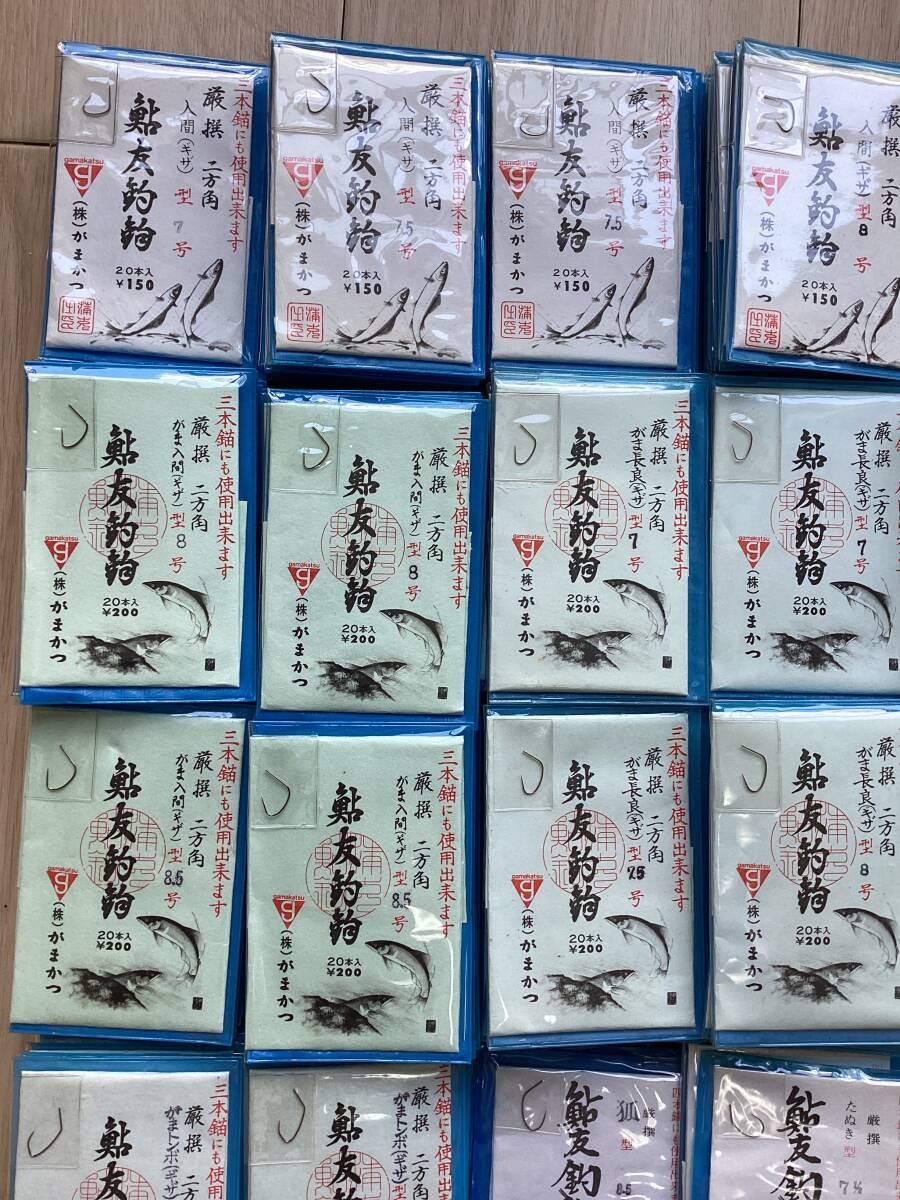 三本錨にも使用出来ます
厳撰 二方角
入間(ギザ)型 7 号
鮎友釣鈎
gamakatsu
g
(株)がまかつ
20本入
¥150
三本錨にも使用出来ます
厳撰 二方角
入間(ギザ)型 7.5 号
鮎友釣鈎
gamakatsu
g
(株)がまかつ
20本入
¥150
三本錨にも使用出来ます
厳撰 二方角
入間(ギザ)型 7.5 号
鮎友釣鈎
gamakatsu
g
(株)がまかつ
20本入
¥150
厳撰 二方角
入間(ギザ)型 8 号
鮎友釣鈎
gamakatsu
g
(株)がまかつ
20本入
¥150
三本錨にも使用出来ます
厳撰 二方角
がま入間(ギザ)型 8 号
鮎友釣鈎
gamakatsu
g
(株)がまかつ
20本入
¥200
三本錨にも使用出来ます
厳撰 二方角
がま入間(ギザ)型 8 号
鮎友釣鈎
gamakatsu
g
(株)がまかつ
20本入
¥200
三本錨にも使用出来ます
厳撰 二方角
がま長良(ギザ)型 7 号
鮎友釣鈎
gamakatsu
g
(株)がまかつ
20本入
¥200
厳撰 二方角
がま長良(ギザ)型 7 号
鮎友釣鈎
gamakatsu
g
(株)がまかつ
20本入
¥200
三本錨にも使用出来ます
厳撰 二方角
がま入間(ギザ)型 8.5 号
鮎友釣鈎
gamakatsu
g
(株)がまかつ
20本入
¥200
三本錨にも使用出来ます
厳撰 二方角
がま入間(ギザ)型 8.5 号
鮎友釣鈎
gamakatsu
g
(株)がまかつ
20本入
¥200
三本錨にも使用出来ます
厳撰 二方角
がま長良(ギザ)型 7.5 号
鮎友釣鈎
gamakatsu
g
(株)がまかつ
20本入
¥200
厳撰 二方角
がま長良(ギザ)型 8 号
鮎友釣鈎
gamakatsu
g
(株)がまかつ
20本入
¥200
三本錨にも使用
厳撰 二方角
がまトンボ(ギザ)
鮎友
三本錨にも使用
厳撰 二方角
がまトンボ(ギザ)
鮎友
四本錨にも使用出来
厳撰
狐型 8.5
鮎友釣
厳撰
たぬき型 7½
鮎友釣